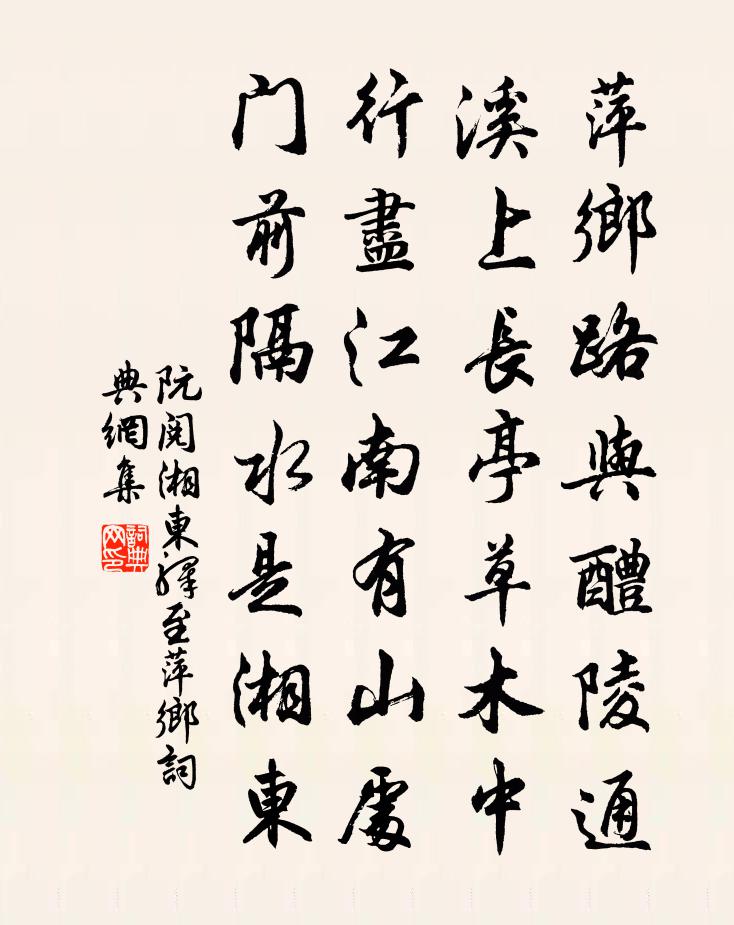 萍鄉路與醴陵通
溪上長亭草木中
行盡江南有山處
门前隔水是湘東
阮阅湘東驛至萍鄉詞
典網集
詞典
网印